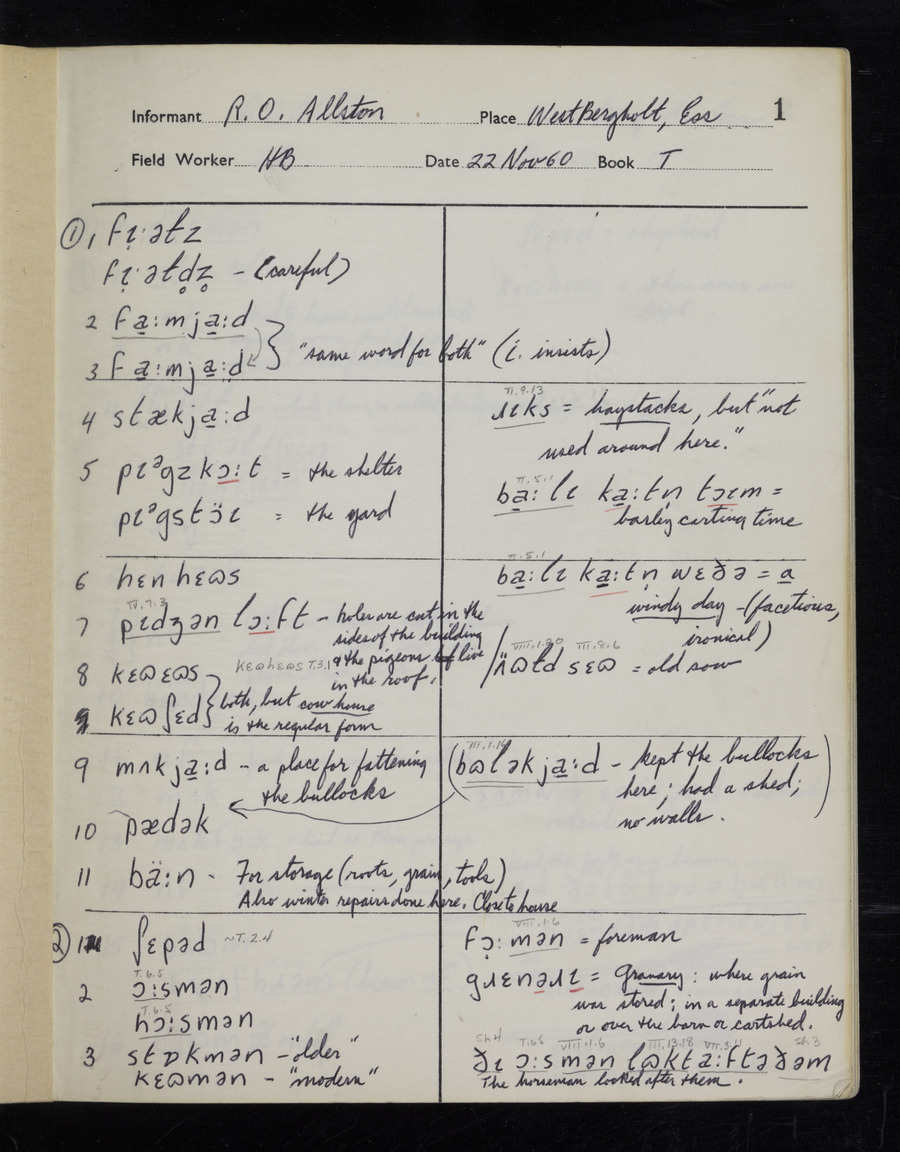 Informant R. O. Allston Place West Bergholt, Ess 1
Field Worker HB Date 22 Nov 60 Book T
① 1 fɪ̣·ətz
fɪ̣·ətd̥z̥ – (careful)
2 fa̠:mja̠:d
3 fa̠:mja̠:d } "same word for both" (i. insists)
4 stækja̠:d
5 pɪᵊgzkɔ:t = the shelter
pɪᵊgstɔ̈ɪ = the yard
6 hɛnhɛɷs
IV.7.3
7 pɪdʒən lɔ:ft – holes are cut in the
sides of the building
& the pigeons live
in the roof.
8 kɛɷɛɷs kɛɷhɛɷs T.3.19
9 kɛɷʃɛd } both, but cow house
is the regular form
9 mʌkja̠:d – a place for fattening
the bullocks
10 pædək
11 bä:n – For storage (roots, grain, tools)
Also winter repairs done here. Close to house
② 1 ʃɛpəd ~T.2.4
T.6.5
2 ɔ:smən
T.6.5
hɔ:smən
3 stɒkmən – "older"
kɛɷmən – "modern"
II.9.13
ɹɪks = haystacks, but "not
used around here."
II.5.1
ba̠:lɪ ka̠:tn̩ tɔɪm =
barley carting time
II.5.1
ba̠:lɪ ka̠:tn̩ wɛðə = a
windy day – (facetious,
ironical)
VIII.1.20 III.8.6
ʌ̈ɷld sɛɷ = old sow
(bɷləkja̠:d – kept the bullocks
here; had a shed;
no walls.)
VIII.1.6
fɔ̣:mən = foreman
gɹɛnəɹɪ = granary: where grain
was stored; in a separate building
or over the barn or cartshed.
Sh4 T.6.5 VIII.1.6 III.13.18 Sh3
ðɪ ɔ:smən lɷkt a̠:ftə ðəm
The horseman looked after them.